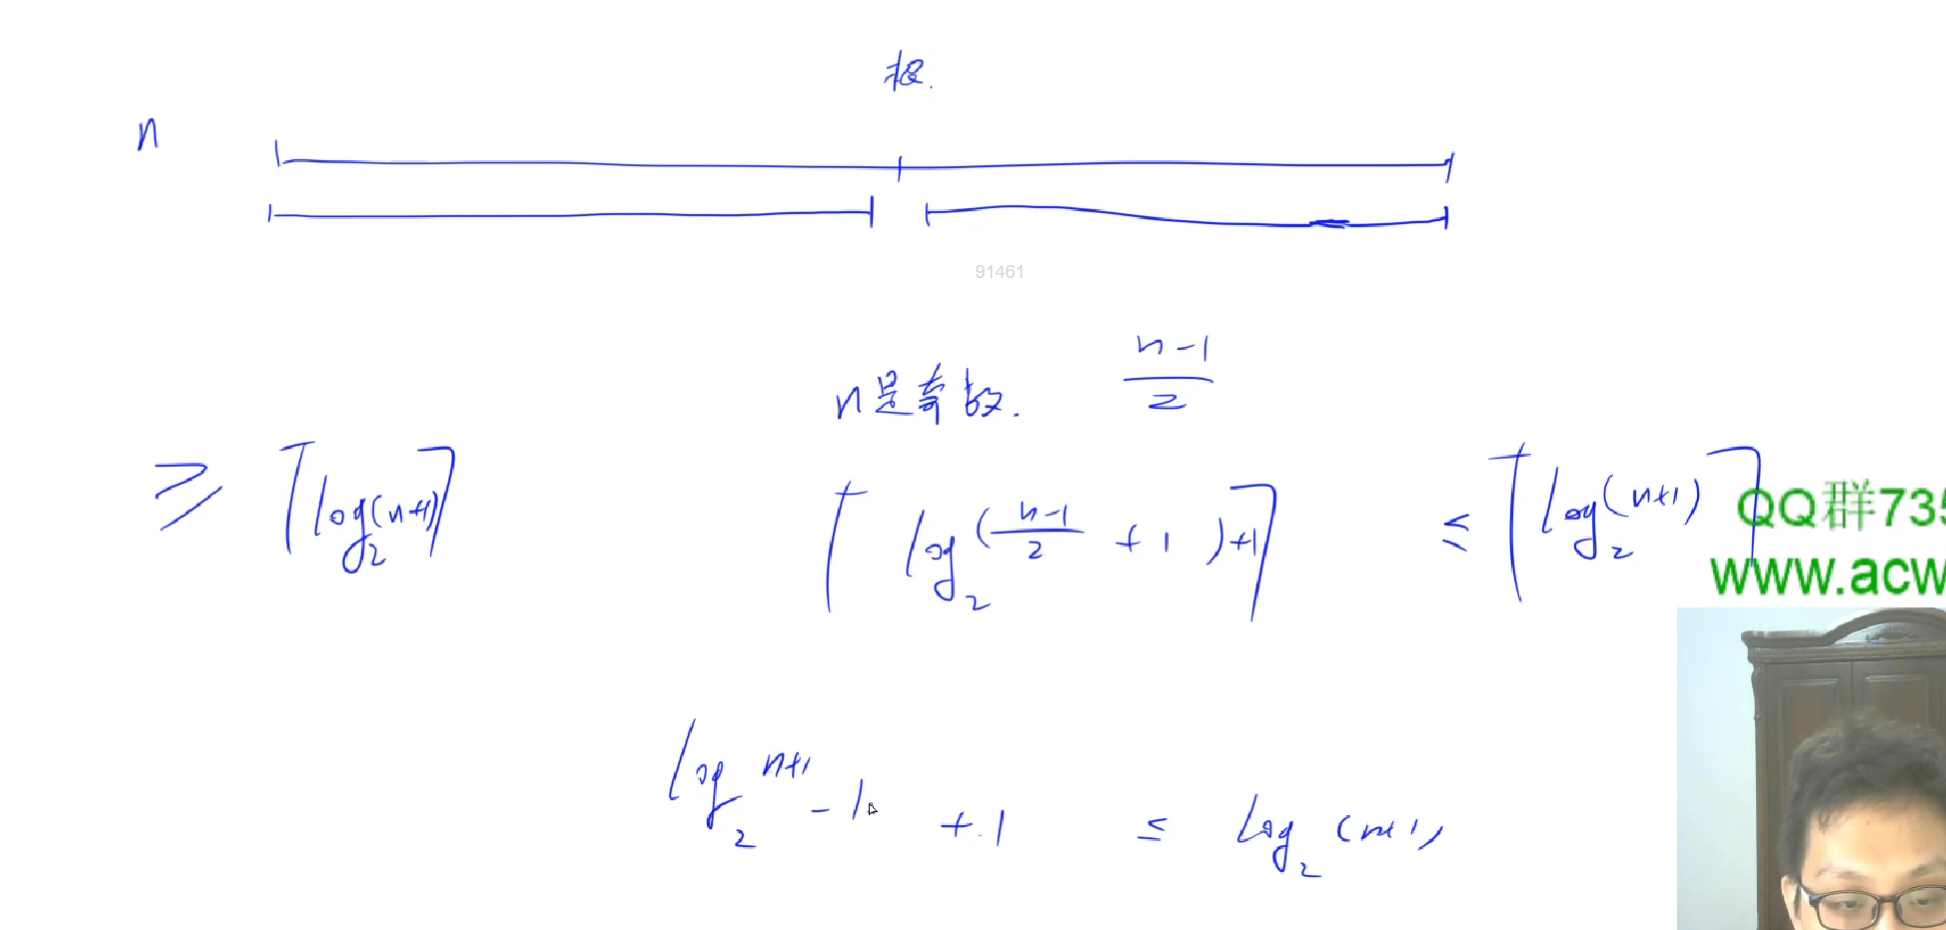 根.
n
91461
n是奇数. (n-1)/2
≥ ⌈log₂(n+1)⌉ ⌈log₂((n-1)/2 + 1)+1⌉ ≤ ⌈log₂(n+1)⌉
QQ群735
www.acw
log₂ n+1 - 1 + 1 ≤ log₂(n+1)